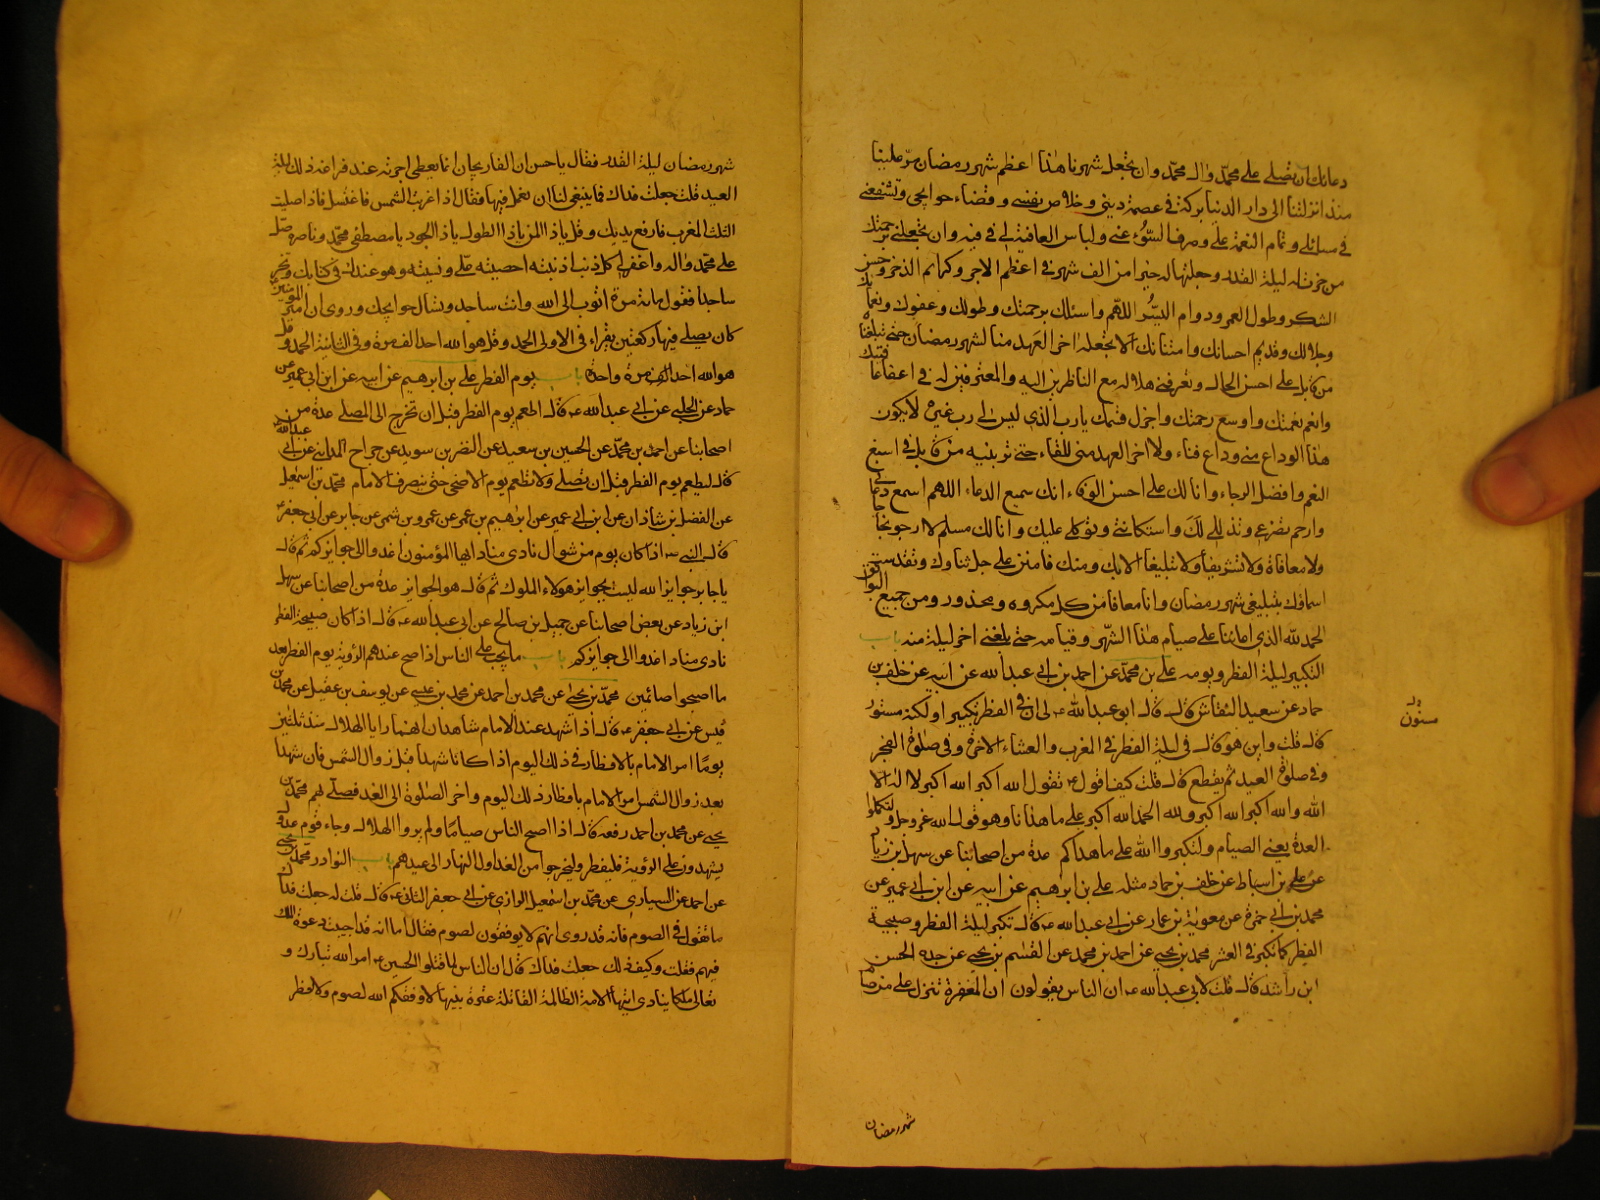 دعائك ان تصلي على محمد وال محمد وان تجعل شهرنا هذا اعظم شهر رمضان مر علينا
منذ انزلتنا الى دار الدنيا بركة في عصمة ديني وخلاص نفسي وقضاء حوايجي وتشفعني
في مسائلي وتمام النعمة علي وصرف السوء عني ولباس العافية لي فيه وان تجعلني برحمتك
من خرت له ليلة القدر وجعلتها له خيرا من الف شهر في اعظم الاجر وكرائم الذخر وحسن
الشكر وطول العمر ودوام اليسر اللهم واسئلك برحمتك وطولك وعفوك ونعمائك
وجلالك وقديم احسانك وامتنانك الا تجعله اخر العهد منا لشهر رمضان حتى تبلغناه
من قابل على احسن الحال وتعرفني هلاله مع الناظرين اليه والمعترفين له في اعفا عافيتك
وانعم نعمتك واوسع رحمتك واجزل قسمك يا رب الذي ليس لي رب غيره لا يكون
هذا الوداع مني وداع فناء ولا اخر العهد مني للقاء حتى ترينيه من قابل في اسبغ
النعم وافضل الرجاء وانا لك على احسن الوفاء انك سميع الدعاء اللهم اسمع دعائي
وارحم تضرعي وتذللي لك واستكانتي وتوكلي عليك وانا لك مسلم لا ارجو نجاحا
ولا معافاة ولا تشريفا ولا تبليغا الا بك ومنك فامنن علي جل ثناوك وتقدست
اسماؤك بتبليغي شهر رمضان وانا معافا من كل مكروه ومحذور ومن جميع البوائق
الحمد لله الذي اعاننا على صيام هذا الشهر وقيامه حتى بلغني اخر ليلة منه باب
التكبير ليلة الفطر ويومه علي بن محمد عن احمد بن ابي عبد الله عن ابيه عن خلف بن
حماد عن سعيد النقاش قال قال ابو عبد الله ع لي ان في الفطر تكبيرا ولكنه مستور
قال قلت واين هو قال في ليلة الفطر في المغرب والعشاء الاخرة وفي صلوة الفجر
وفي صلوة العيد ثم يقطع قال قلت كيف اقول ع تقول الله اكبر الله اكبر لا اله الا
الله والله اكبر الله اكبر ولله الحمد الله اكبر على ما هدانا وهو قول الله عز وجل ولتكملوا
العدة يعني الصيام ولتكبروا الله على ما هداكم عدة من اصحابنا عن سهل بن زياد
عن علي بن اسباط عن خلف بن حماد مثله علي بن ابرهيم عن ابيه عن ابن ابي عمير عن
محمد بن ابي حمزة عن معوية بن عمار عن ابي عبد الله ع قال تكبر ليلة الفطر وصبيحة
الفطر كما تكبر في العشر محمد بن يحيى عن احمد بن محمد عن القسم بن يحيى عن جده الحسن
ابن راشد قال قلت لابي عبد الله ع ان الناس يقولون ان المغفرة تنزل على من صام
مسنون
شهر رمضان
شهر رمضان ليلة القدر فقال يا حسن ان الفاريجان انما يعطى اجرته عند فراغه ذلك ليلة
العيد قلت جعلت فداك فما ينبغي لنا ان نعمل فيها فقال اذا غربت الشمس فاغتسل فاذا صليت
الثلث المغرب فارفع يديك وقل يا ذا المن يا ذا الطول يا ذا الجود يا مصطفى محمد وناصره صل
على محمد واله واغفر لي كل ذنب اذنبته احصيته علي ونسيته وهو عندك في كتابك وتخر
ساجدا فتقول مائة مرة اتوب الى الله وانت ساجد وتسال حوايجك وروى ان امير المومنين ع
كان يصلي فيها ركعتين يقراء في الاولى الحمد وقل هو الله احد الف مرة وفي الثانية الحمد وقل
هو الله احد مرة واحدة باب يوم الفطر علي بن ابرهيم عن ابيه عن ابن ابي عمير عن
حماد عن الحلبي عن ابي عبد الله ع قال اطعم يوم الفطر قبل ان تخرج الى المصلى عدة من
اصحابنا عن احمد بن محمد عن الحسين بن سعيد عن النضر بن سويد عن جراح المدائني عن ابي عبد الله
قال ليطعم يوم الفطر قبل ان تصلي ولا تطعم يوم الاضحى حتى ينصرف الامام محمد بن اسمعيل
عن الفضل بن شاذان عن ابن ابي عمير عن ابرهيم بن عمر عن عمرو بن شمر عن جابر عن ابي جعفر ع
قال النبي ص اذا كان يوم من شوال نادى مناد ايها المؤمنون اغدوا الى جوايزكم ثم قال
يا جابر جوايز الله ليست بجوايز هولاء الملوك ثم قال هو الجوايز عدة من اصحابنا عن سهل
ابن زياد عن بعض اصحابنا عن جميل بن صالح عن ابي عبد الله ع قال اذا كان صبيحة الفطر
نادى مناد اغدوا الى جوايزكم باب ما يجب على الناس اذا صح عندهم الرؤية يوم الفطر بعد
ما اصبحوا صائمين محمد بن يحيى عن محمد بن احمد عن محمد بن عيسى عن يوسف بن عقيل عن محمد بن
قيس عن ابي جعفر ع قال اذا شهد عند الامام شاهدان انهما رايا الهلال منذ ثلثين
يوما امر الامام بالافطار في ذلك اليوم اذا كانا شهدا قبل زوال الشمس فان شهدا
بعد زوال الشمس امر الامام بافطار ذلك اليوم واخر الصلوة الى الغد فصلى بهم محمد بن
يحيى عن محمد بن احمد رفعه قال اذا اصبح الناس صياما ولم يروا الهلال وجاء قوم عدول
يشهدون على الرؤية فليفطروا وليخرجوا من الغد اول النهار الى عيدهم باب النوادر محمد بن يحيى
عن احمد عن السياري عن محمد بن اسمعيل الرازي عن ابي جعفر الثاني ع قال قلت له جعلت فداك
ما تقول في الصوم فانه قد روى انهم لا يوفقون لصوم فقال اما انه قد اجيبت دعوة الملك
فيهم فقلت وكيف ذلك جعلت فداك قال ان الناس لما قتلوا الحسين ع امر الله تبارك و
تعالى ملكا ينادي ايتها الامة الظالمة القاتلة عترة نبيها لا وفقكم الله لصوم ولا لفطر